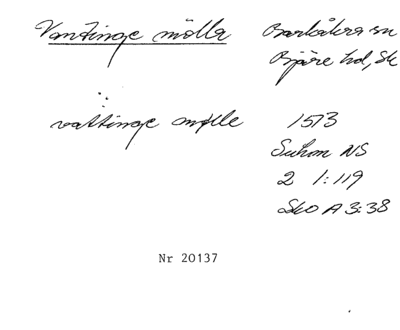 Vantinge mölla
Barkåkra sn
Bjäre hd, Sk
vattinge mølle
1573
Suhm NS
2 1:119
SkO A 3:38
Nr 20137